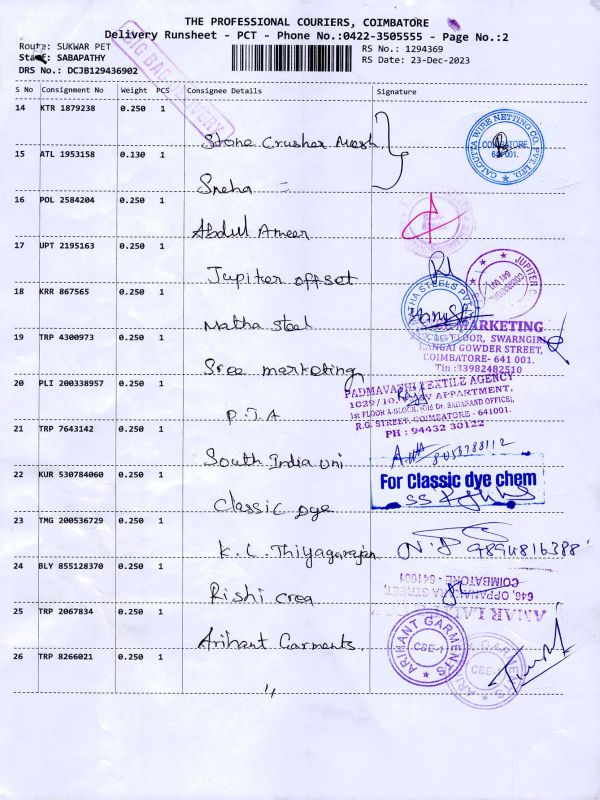 THE PROFESSIONAL COURIERS, COIMBATORE
Delivery Runsheet - PCT - Phone No.:0422-3505555 - Page No.:2
Route: SUKWAR PET
RS No.: 1294369
Staff: SABAPATHY
RS Date: 23-Dec-2023
DRS No.: DCJB129436902
BIG BAG DELIVERY
S No Consignment No Weight PCS Consignee Details Signature
14 KTR 1879238 0.250 1
Stone Crusher Mesh
CALCUTTA WIRE NETTING CO. PVT. LTD.
COIMBATORE
641 001.
15 ATL 1953158 0.130 1
Sneha
16 POL 2584204 0.250 1
Abdul Ameer
17 UPT 2195163 0.250 1
Jupiter offset
18 KRR 867565 0.250 1
Matha steel
MARKETING
FLOOR, SWARNGIRI
RANGAI GOWDER STREET,
COIMBATORE- 641 001.
Tin :33982482510
19 TRP 4300973 0.250 1
Sree marketing
20 PLI 200338957 0.250 1
P.T.A
PADMAVATHI TEXTILE AGENCY
APPARTMENT,
1st FLOOR A-BLOCK, (Old Dr. SADANAND OFFICE),
R.G. STREET, COIMBATORE - 641001.
PH : 94432 30122
21 TRP 7643142 0.250 1
South India uni
22 KUR 530784060 0.250 1
Classic Dye
For Classic dye chem
23 TMG 200536729 0.250 1
K.C. Thiyagarajan
9894816388
24 BLY 855128370 0.250 1
Rishi crea
646, OPPANAKARA STREET,
COIMBATORE - 641001
25 TRP 2067834 0.250 1
Arihant Garments
ARIHANT GARMENTS
CBE-1
26 TRP 8266021 0.250 1